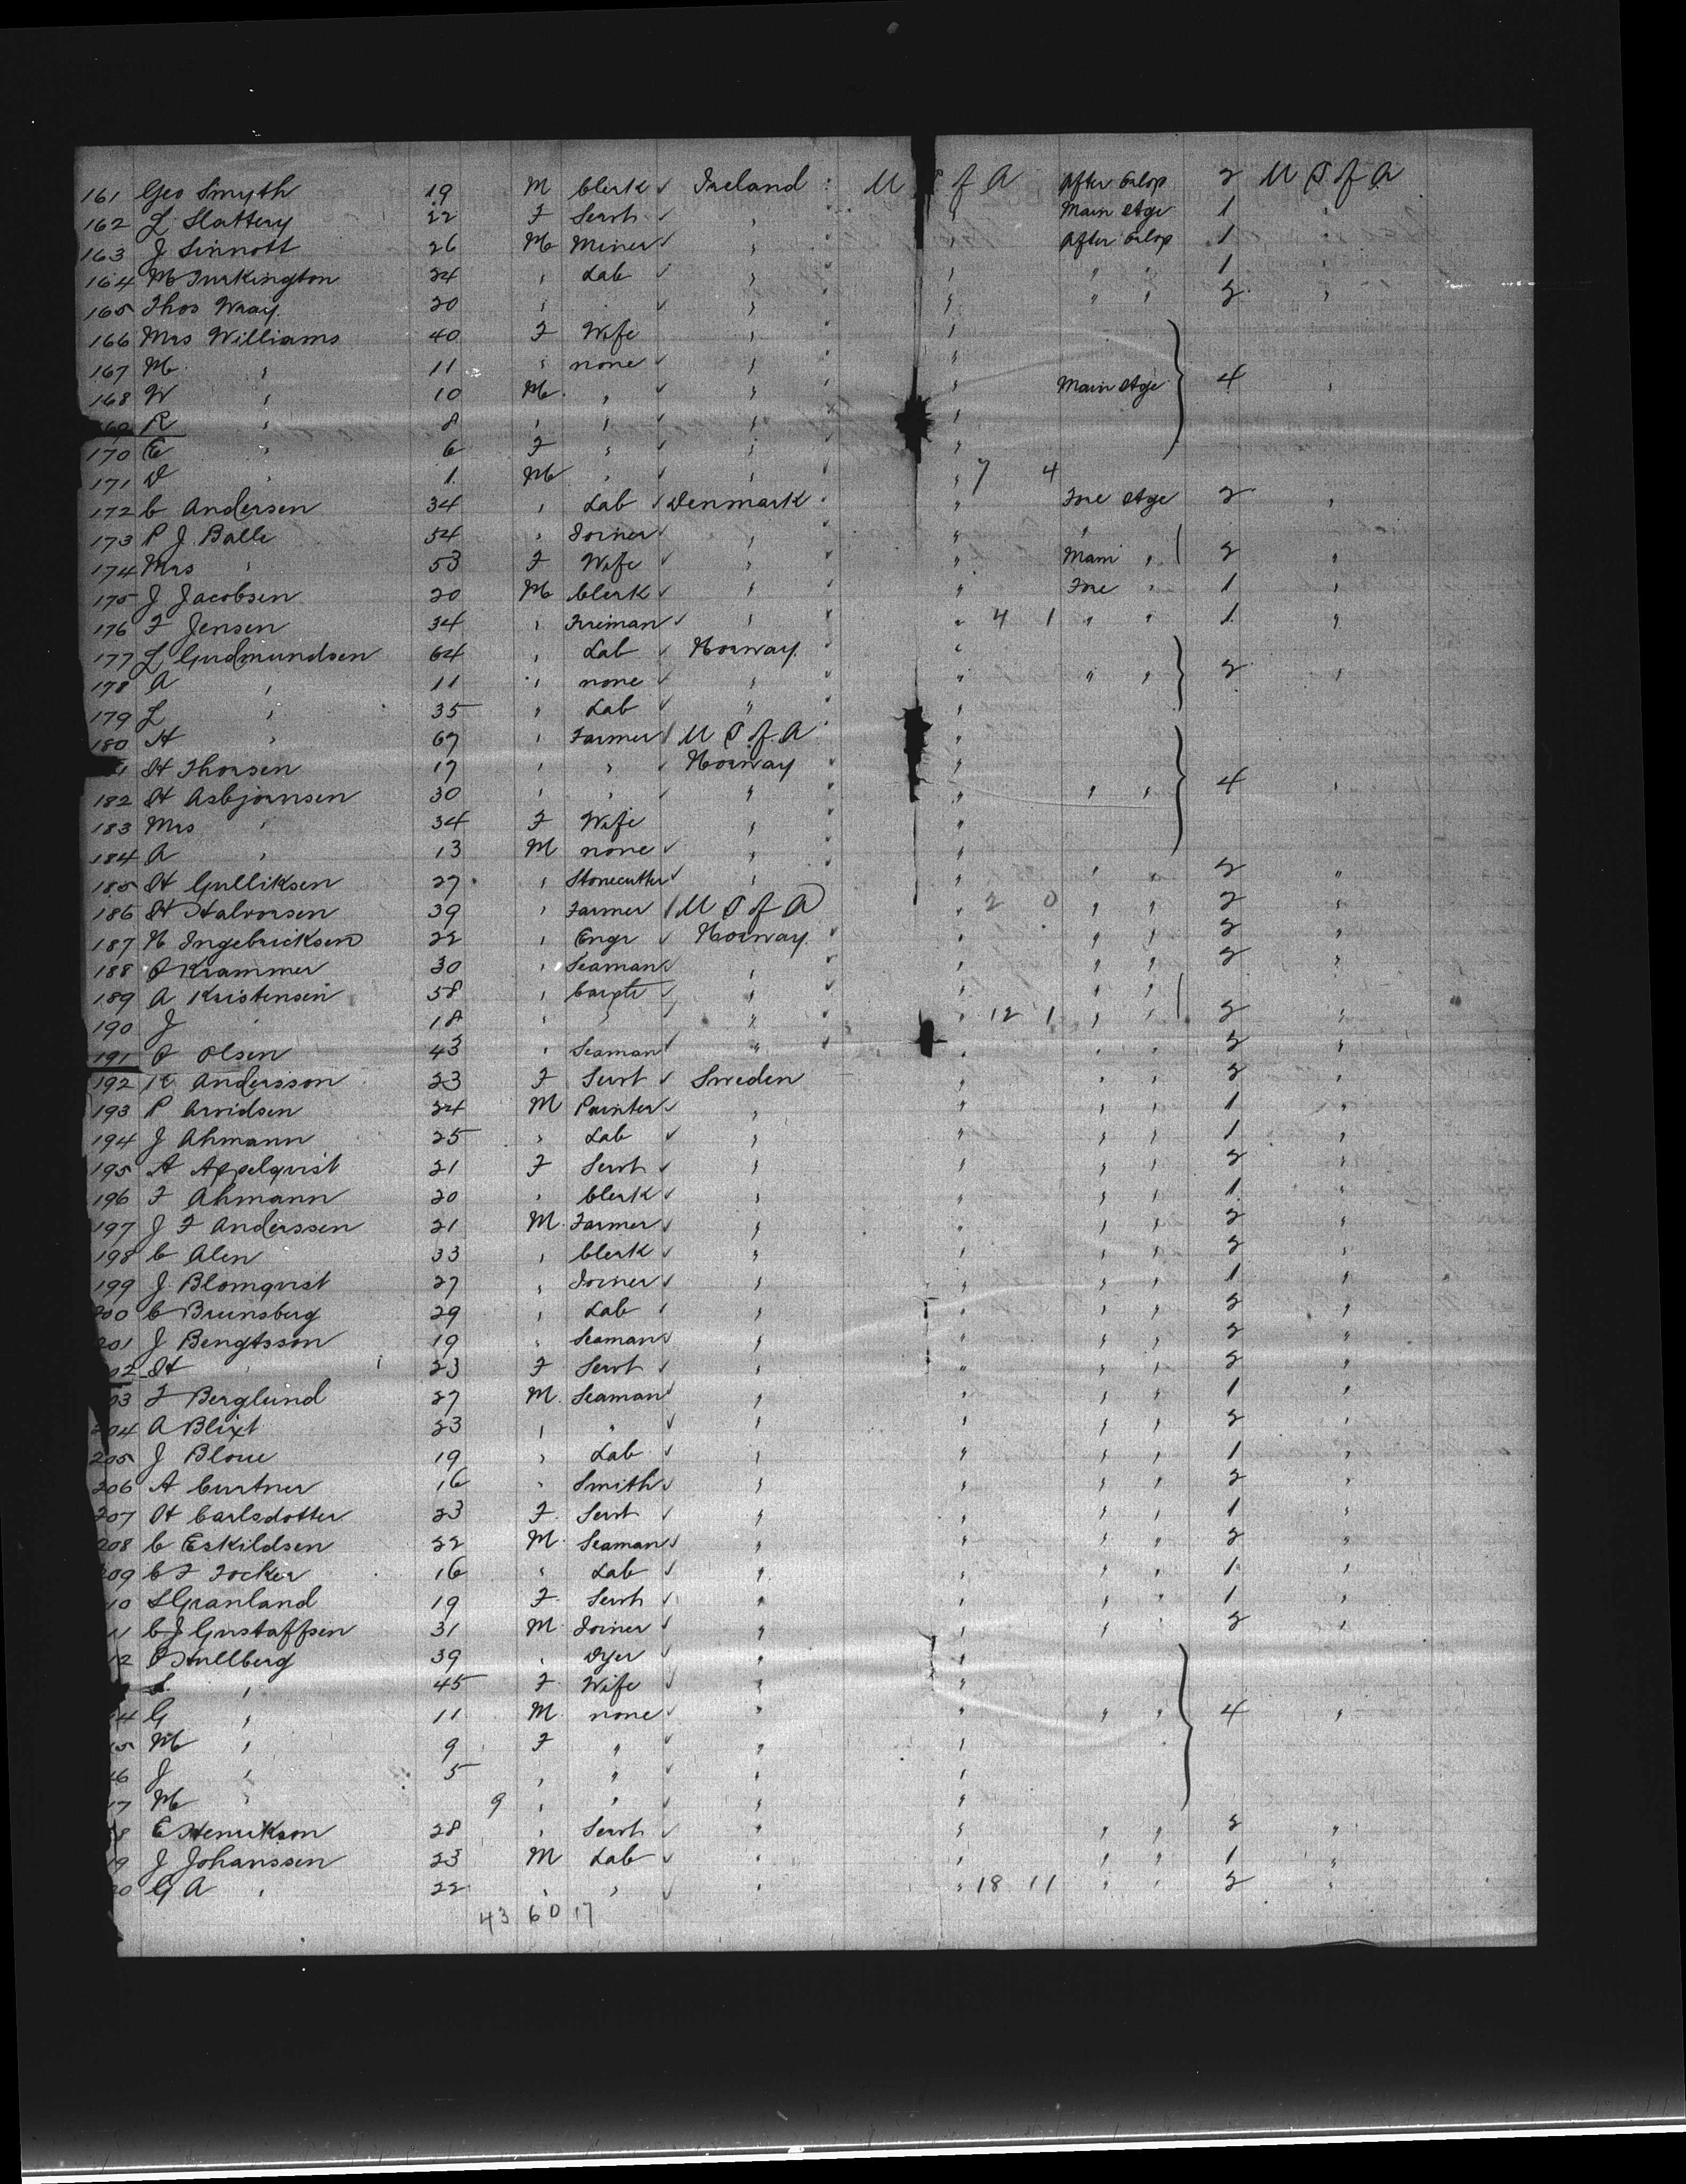 161 Geo Smyth 19 M Clerk Ireland U S of A After Orlop 2 U S of A
162 L Slattery 22 F Servt " " Main Stge 1 "
163 J Sinnott 26 M Miner " " After Orlop 1 "
164 M Turkington 24 " Lab " " " " 1 "
165 Thos Wray 20 " " " " " " 2 "
166 Mrs Williams 40 F Wife " "
167 M " 11 " none " "
168 W " 10 M " " " Main Stge 4 "
169 R " 8 " " " "
170 E " 6 F " " "
171 D " 1 M " " " 7 4
172 C Andersen 34 " Lab Denmark " Fore Stge 2 "
173 P J Balle 54 " Joiner " " "
174 Mrs " 53 F Wife " " Main " 2 "
175 J Jacobsen 20 M Clerk " " Fore " 1 "
176 F Jensen 34 " Fireman " " 4 1 " " 1 "
177 L Gudmundsen 64 " Lab Norway "
178 A " 11 " none " " " " 2 "
179 L " 35 " Lab " "
180 H " 67 " Farmer U S of A "
1 H Thorsen 17 " " Norway "
182 H Asbjornsen 30 " " " " " " 4 "
183 Mrs " 34 F Wife " "
184 A " 13 M none " "
185 H Gulliksen 27 " Stonecutter " " " " 2 "
186 H Halvorsen 39 " Farmer U S of A " 2 0 " " 2 "
187 N Ingebricksen 22 " Engr Norway " " " 2 "
188 O Krammer 30 " Seaman " " " " 2 "
189 A Kristensen 58 " Carptr " " " "
190 J " 18 " " " " 12 1 " " 2 "
191 O Olsen 43 " Seaman " " " " 2 "
192 K Andersson 23 F Servt Sweden " " " 2 "
193 P Arvidsen 24 M Painter " " " " 1 "
194 J Ahmann 25 " Lab " " " " 1 "
195 A Appelqvist 21 F Servt " " " " 2 "
196 F Ahmann 20 " Clerk " " " " 1 "
197 J F Anderssen 21 M Farmer " " " " 2 "
198 C Alen 33 " Clerk " " " " 2 "
199 J Blomqvist 27 " Joiner " " " " 1 "
200 C Brunsberg 29 " Lab " " " " 2 "
201 J Bengtsson 19 " Seaman " " " " 2 "
02 H " 23 F Servt " " " " 2 "
03 F Berglund 27 M Seaman " " " " 1 "
204 A Blixt 23 " " " " " " 2 "
205 J Blour 19 " Lab " " " " 1 "
206 A Curtner 16 " Smith " " " " 2 "
207 H Carlsdotter 23 F Servt " " " " 1 "
208 C Eskildsen 22 M Seaman " " " " 2 "
209 C F Focker 16 " Lab " " " " 1 "
10 S Granland 19 F Servt " " " " 1 "
11 C J Gustaffsen 31 M Joiner " " " " 2 "
12 O Hullberg 39 " Dyer " "
S " 45 F Wife " "
14 G " 11 M none " " " " 4 "
15 M " 9 F " " "
16 J " 5 " " " "
17 M " 9 " " " "
8 E Henrikson 28 " Servt " " " " 2 "
19 J Johanssen 23 M Lab " " " " 1 "
20 G A " 22 " " " " 18 11 " " 2 "
43 60 17